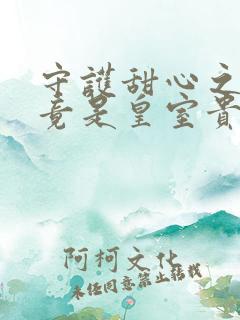 守護甜心之
竟是皇室貴
阿柯文化
未經同意禁止轉載